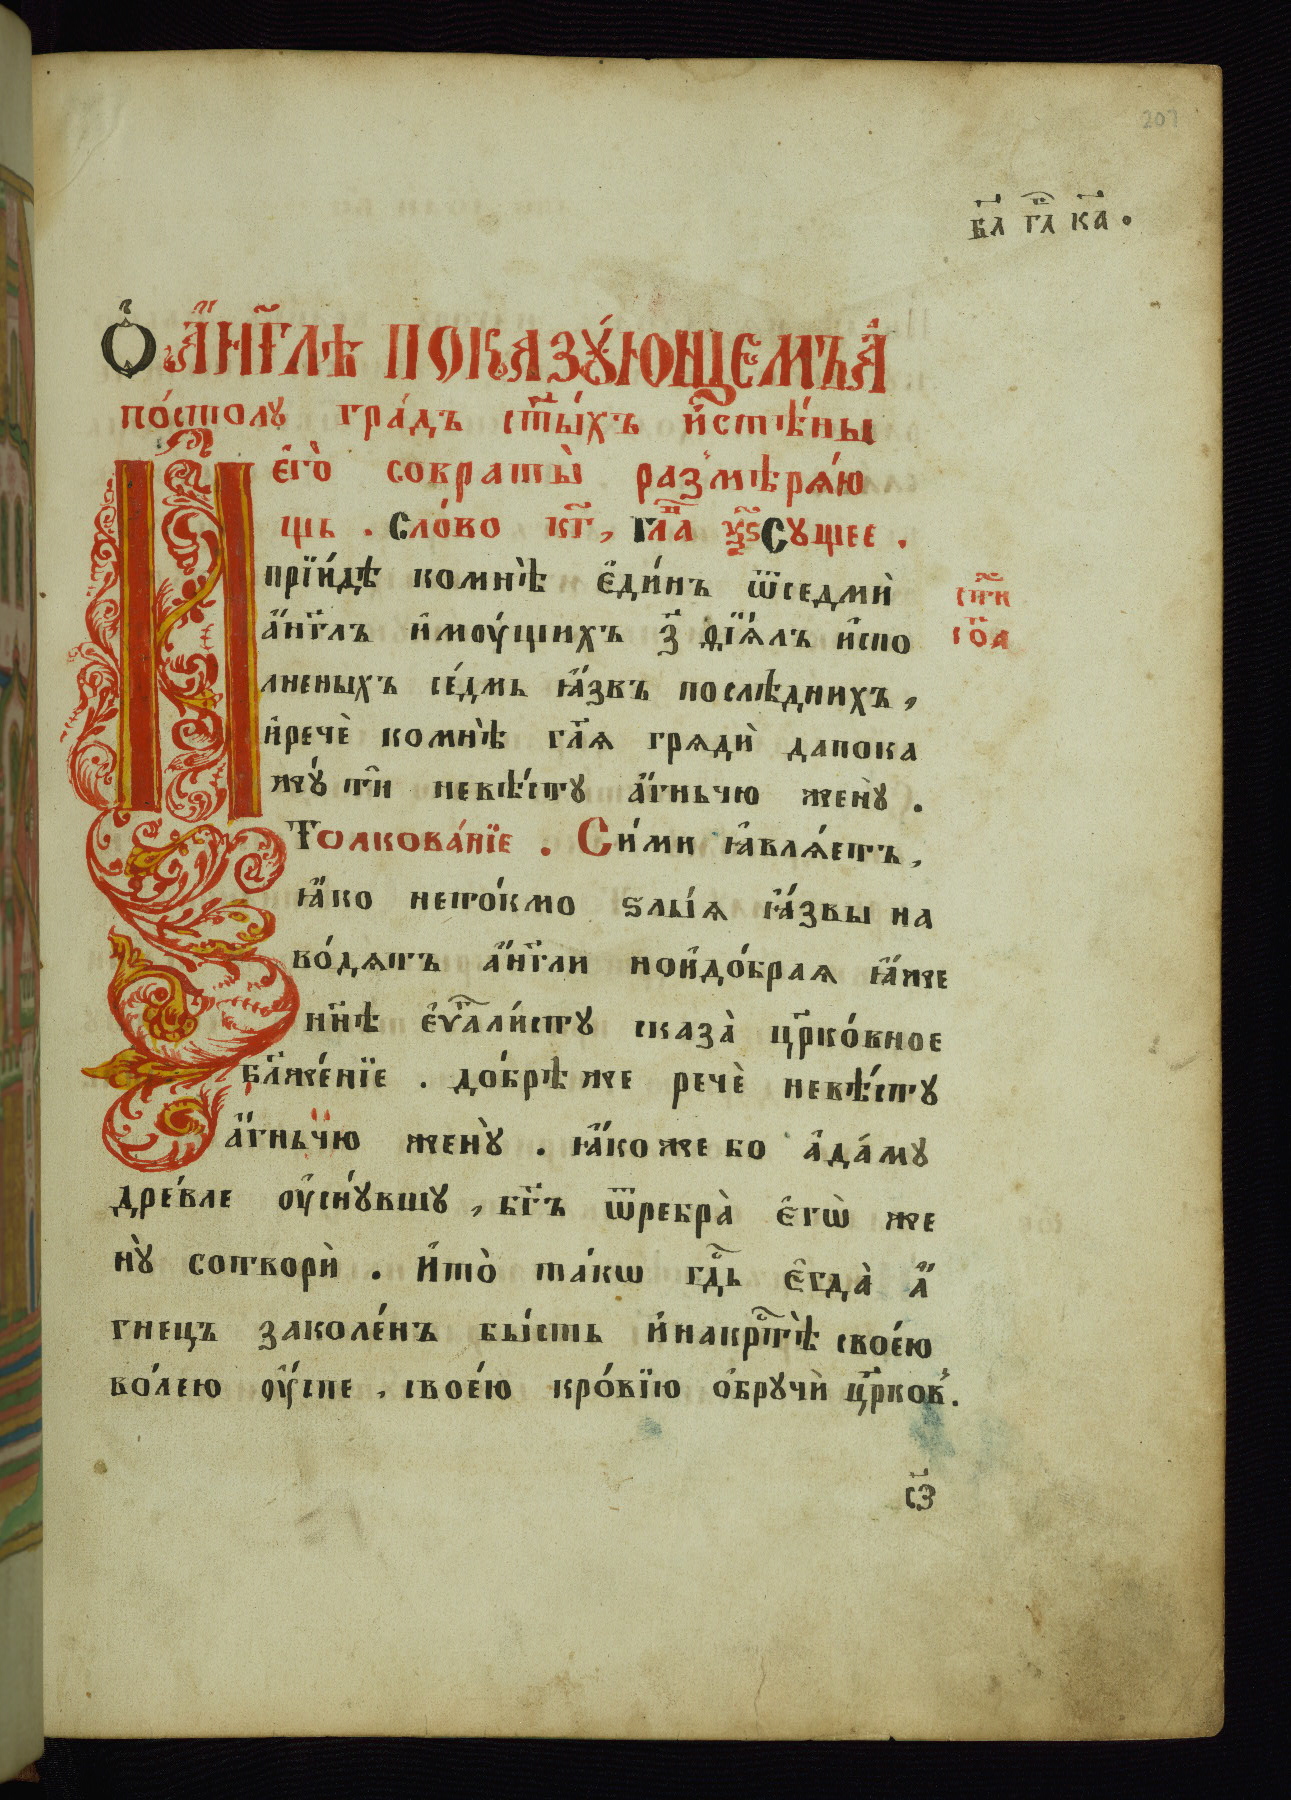 207
б҃л гл҃ к҃а .
Ѻ҆ а҆́нг҃лѣ показꙋ́ющемъ а҆
по́столꙋ гра́дъ ст҃ы́хъ и҆ стѣ́ны
є҆го̀ сократы̀ размѣря́ю
щь . Сло́во к҃г, гл҃а ѯ҃ѕ Сущее .
прїи́дѣ комнѣ̀ є҆ди́нъ ѿ седмѝ
а҆́нг҃лъ и҆моу́щихъ з҃ фїѧ́лъ и҆спо
лненыхъ се́дмь ꙗ҆́звъ послѣднихъ ,
и҆речѐ комнѣ̀ гл҃ѧ грѧдѝ дапока
жу́ ти҆ невѣ́сту а҆́гньчю жену̀ .
Толкова́нїе . Си́ми ꙗ҆влѧ́етъ ,
ꙗ҆́ко нето́кмо ѕлы́ѧ ꙗ҆́звы на
во́дѧтъ а҆́нг҃ли нои҆до́браѧ ꙗ҆́же
нн҃ѣ є҆ѵ҃али́сту сказа̀ цр҃ко́вное
бл҃же́нїе . до́брѣ же речѐ невѣ́сту
а҆́гньчю жену̀ . ꙗ҆́коже бо а҆да́му
дре́вле оу҆сну́вшу , бг҃ъ ѿребра̀ є҆гѡ̀ же
ну̀ сотворѝ . И҆то̀ та́кѡ гд҃ь є҆гда̀ а҆́
гнецъ заколе́нъ бы́сть и҆накрⷭ҇тѣ̀ свое́ю
во́лею оу҆́спе , свое́ю кро́вїю о҆бручѝ цр҃ков .
сп҃и
со҃а
с҃з